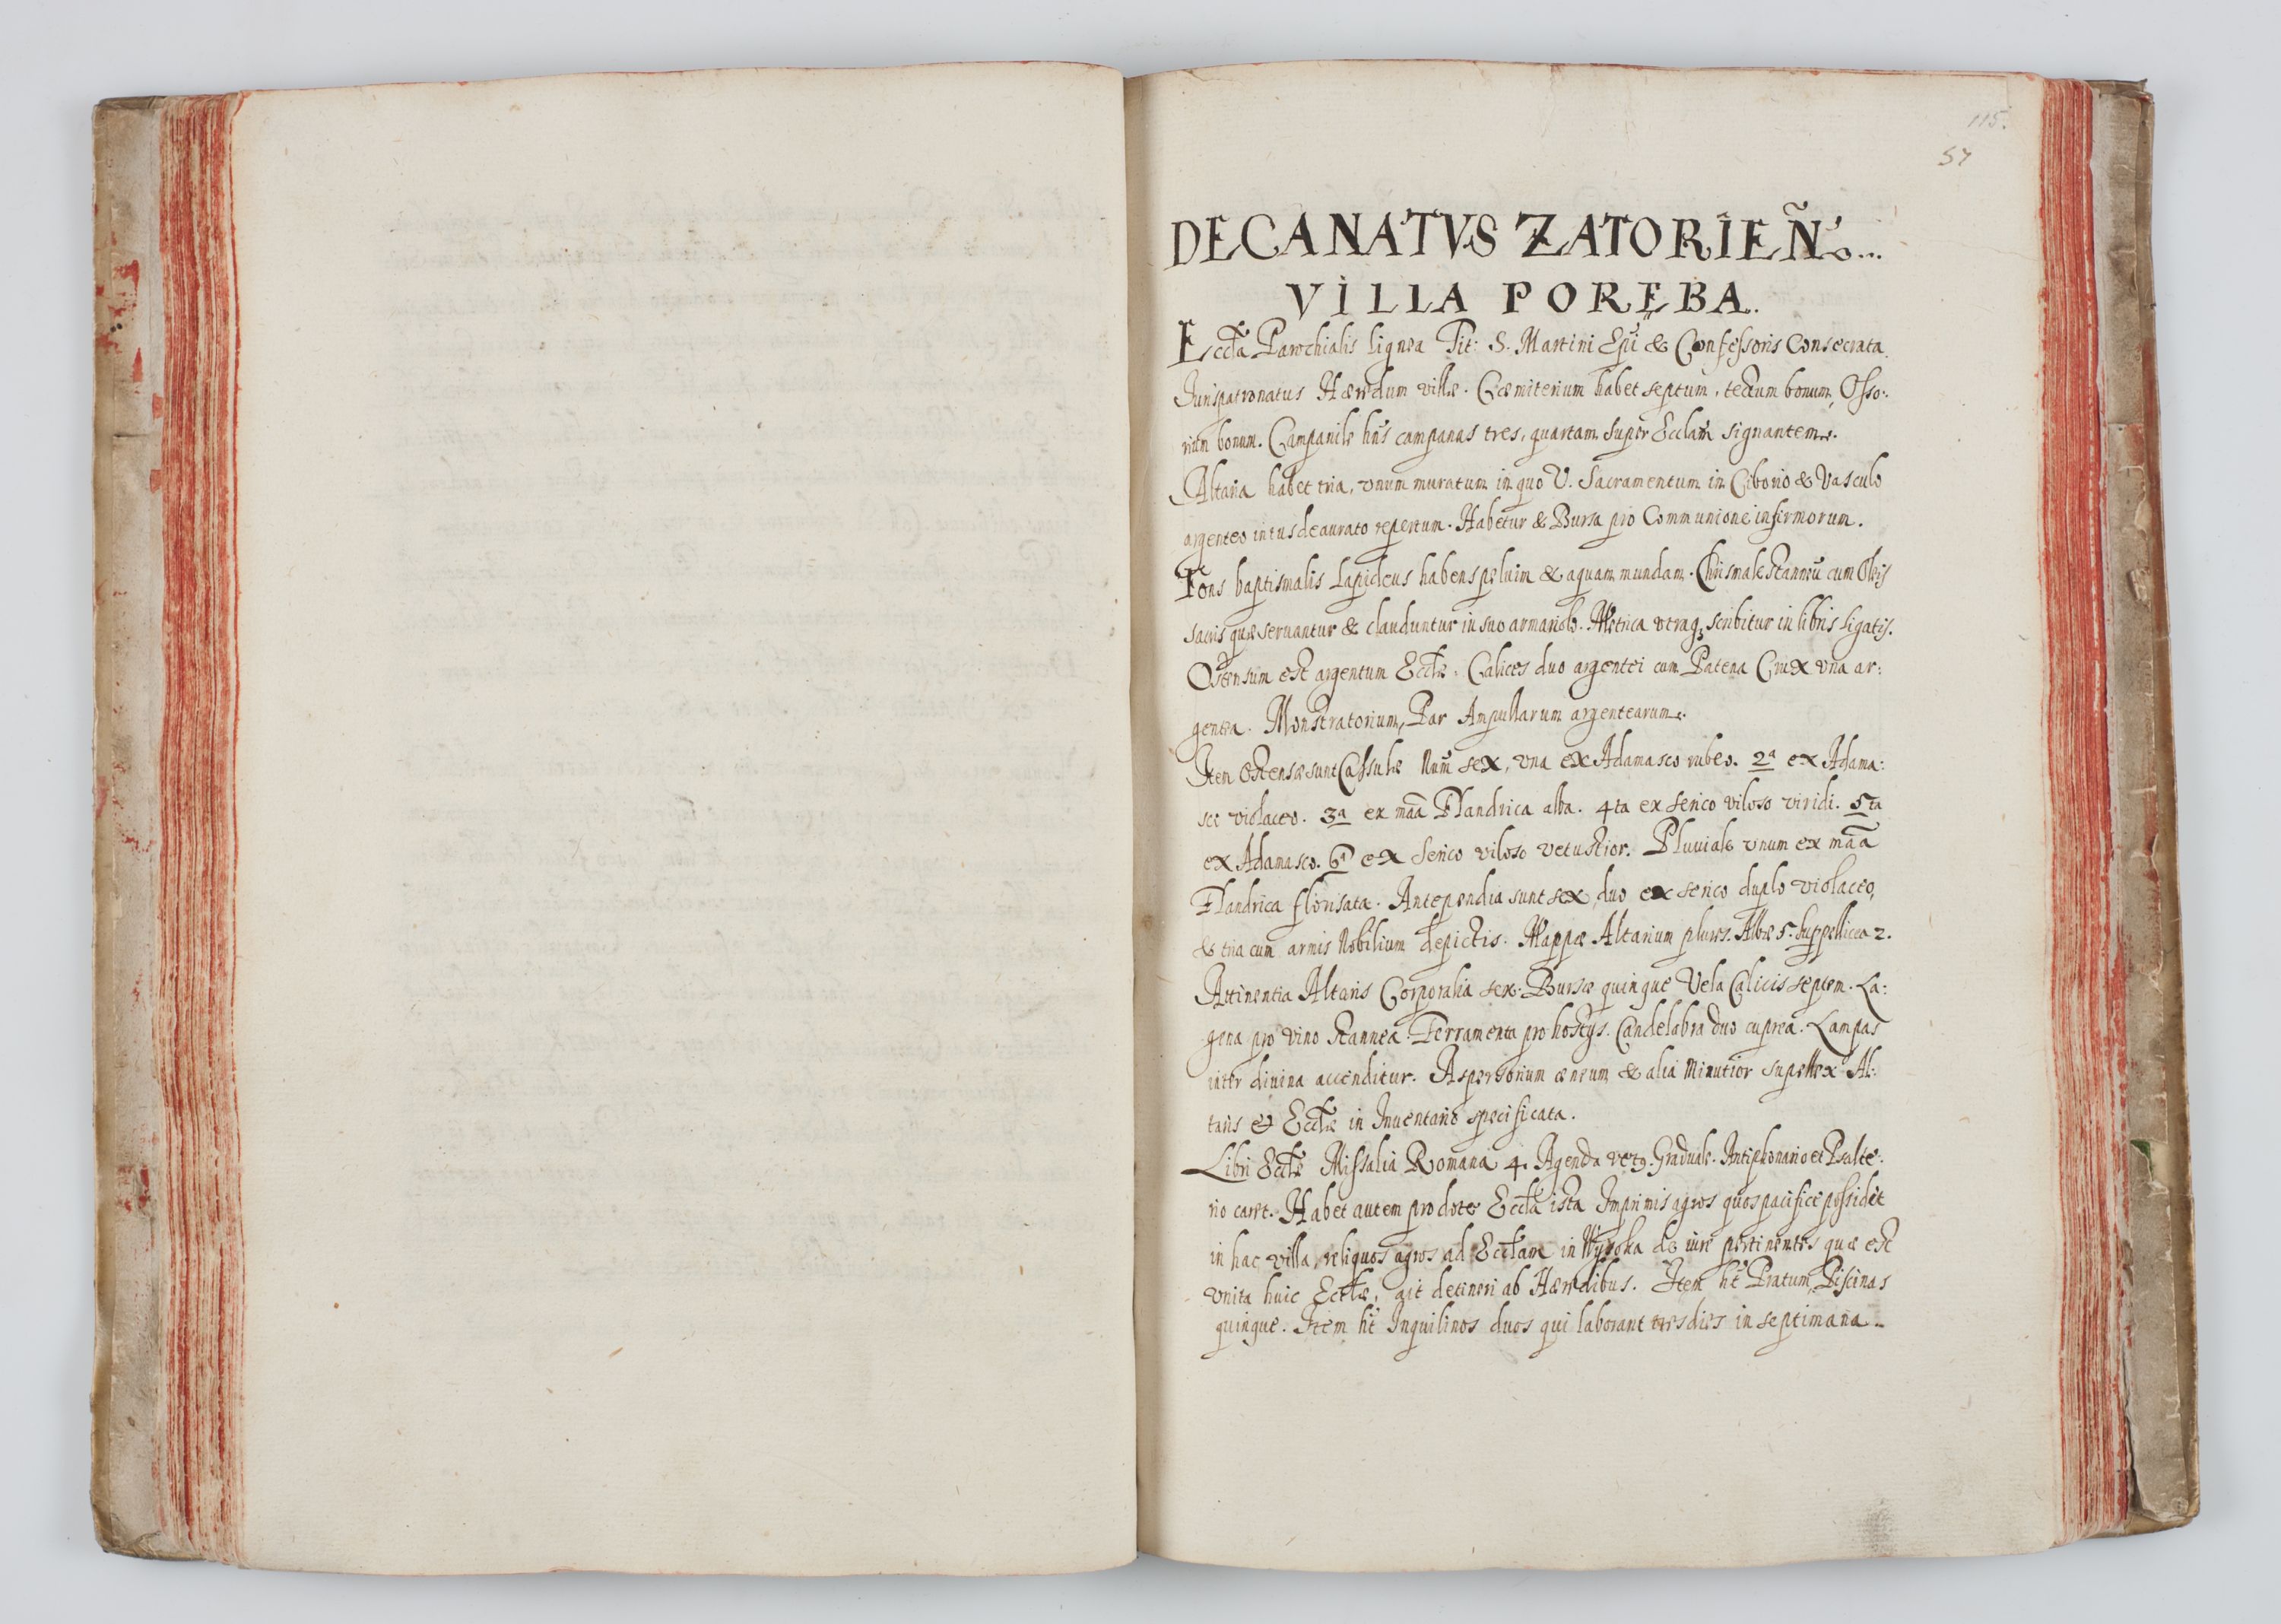 115.
57
DECANATVS ZATORIEÑ:...
VILLA PORĘBA.
Eccła Parochialis lignea Tit: S. Martini Epi & Confessoris Consecrata.
Jurispatronatus Hæredum villæ. Cæmiterium habet septum, tectum bonum, Osso:
rium bonum. Campanile hñs campanas tres, quartam super Ecclam signantem.
Altaria habet tria, vnum muratum in quo V. Sacramentum in Ciborio & Vasculo
argenteo intus deaurato repertum. Habetur & Bursa pro Communione infirmorum.
Fons baptismalis lapideus habens peluim & aquam mundam. Chrismale stanneũ cum Oleis
sacris quæ seruantur & clauduntur in suo armariolo. Metrica vtraqꝫ scribitur in libris ligatis.
Ostensum est argentum Eccłæ. Calices duo argentei cum Patena Crux vna ar:
gentea. Monstratorium, Par Ampullarum argentearum.
Item Ostensæ sunt Cassulæ Num̃ sex, vna ex Adamasco rubeo. 2ª ex Adama:
sco violaceo. 3ª ex mãa Flandrica alba. 4ta ex serico viloso viridi. 5ta
ex Adamasco. 6ª ex Serico viloso vetustior. Pluuiale vnum ex mãa
Flandrica florisata. Antependia sunt sex, duo ex serico duplo violaceo,
& tria cum armis Nobilium depictis. Mappæ Altarium plures. Albæ 5. Suppellicea 2.
Attinentia Altaris Corporalia sex. Bursæ quinque Vela Calicis septem. La:
gena pro vino stannea. Ferramenta pro hostijs. Candelabra duo cuprea. Lampas
inter diuina accenditur. Aspersorium æneum & alia Minutior supellex Al:
taris & Eccłæ in Inuentario specificata.
Libri Eccłæ Missalia Romana 4. Agenda Graduale. Antiphonario et Psalte:
rio caret. Habet autem pro dote Eccła ista Imprimis agros quos pacifice possidet
in hac villa, reliquos agros ad Eccłam in Wysoka de iure pertinentes quæ est
vnita huic Eccłæ, ait detineri ab Hæredibus. Item ht̃ Pratum, Piscinas
quinque. Item ht̃ Inquilinos duos qui laborant tres dies in septimana